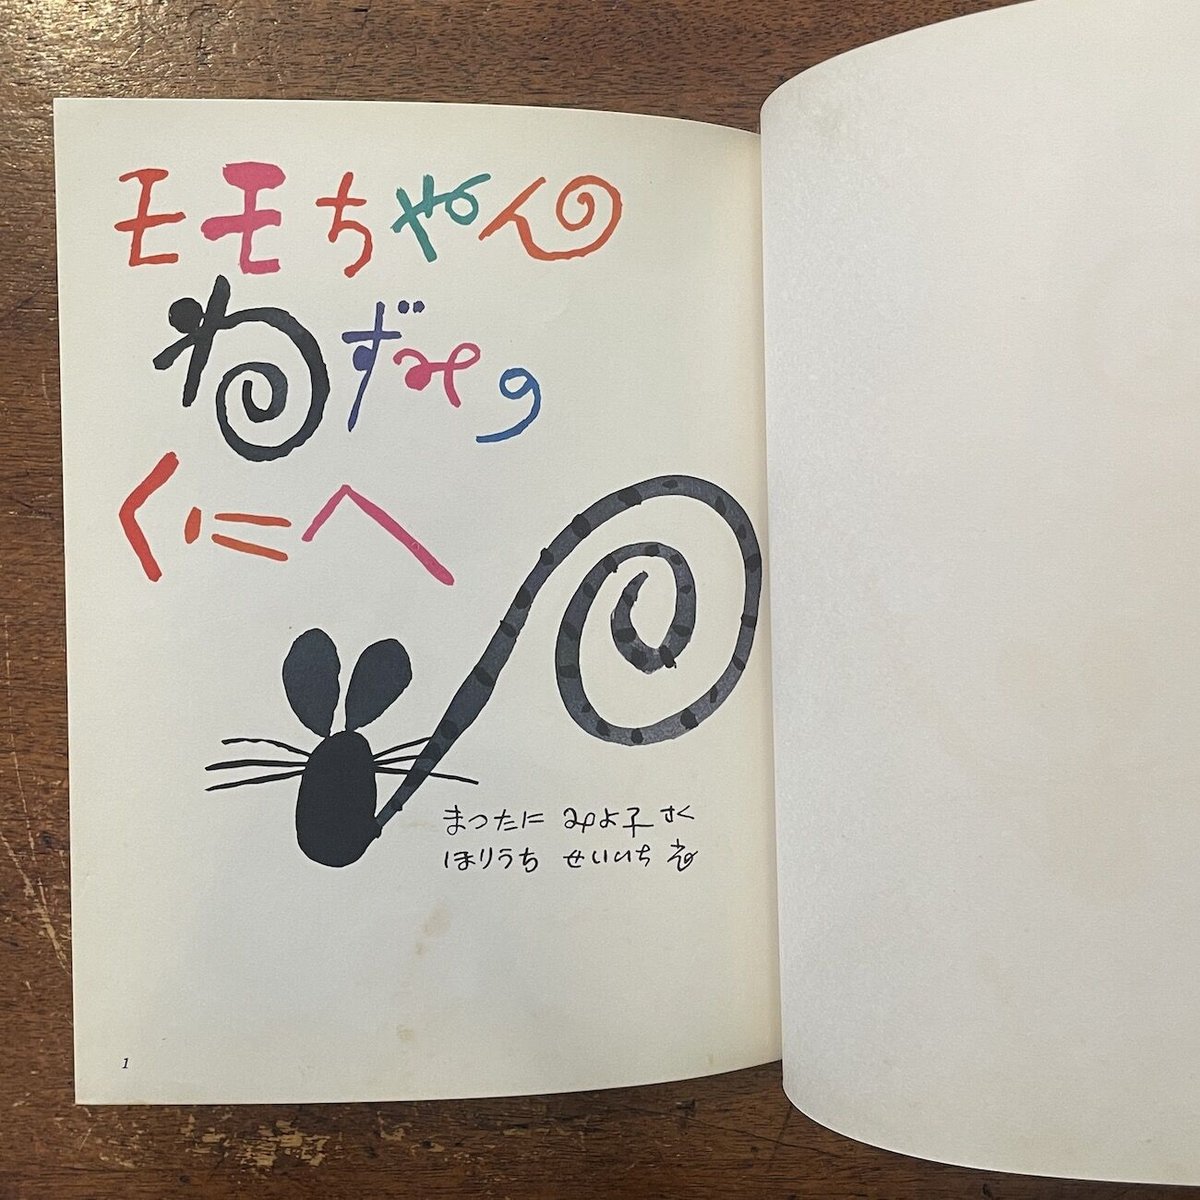 モモちゃんの
ねずみの
くにへ
まつたに みよ子 さく
ほりうち せいいち え
1